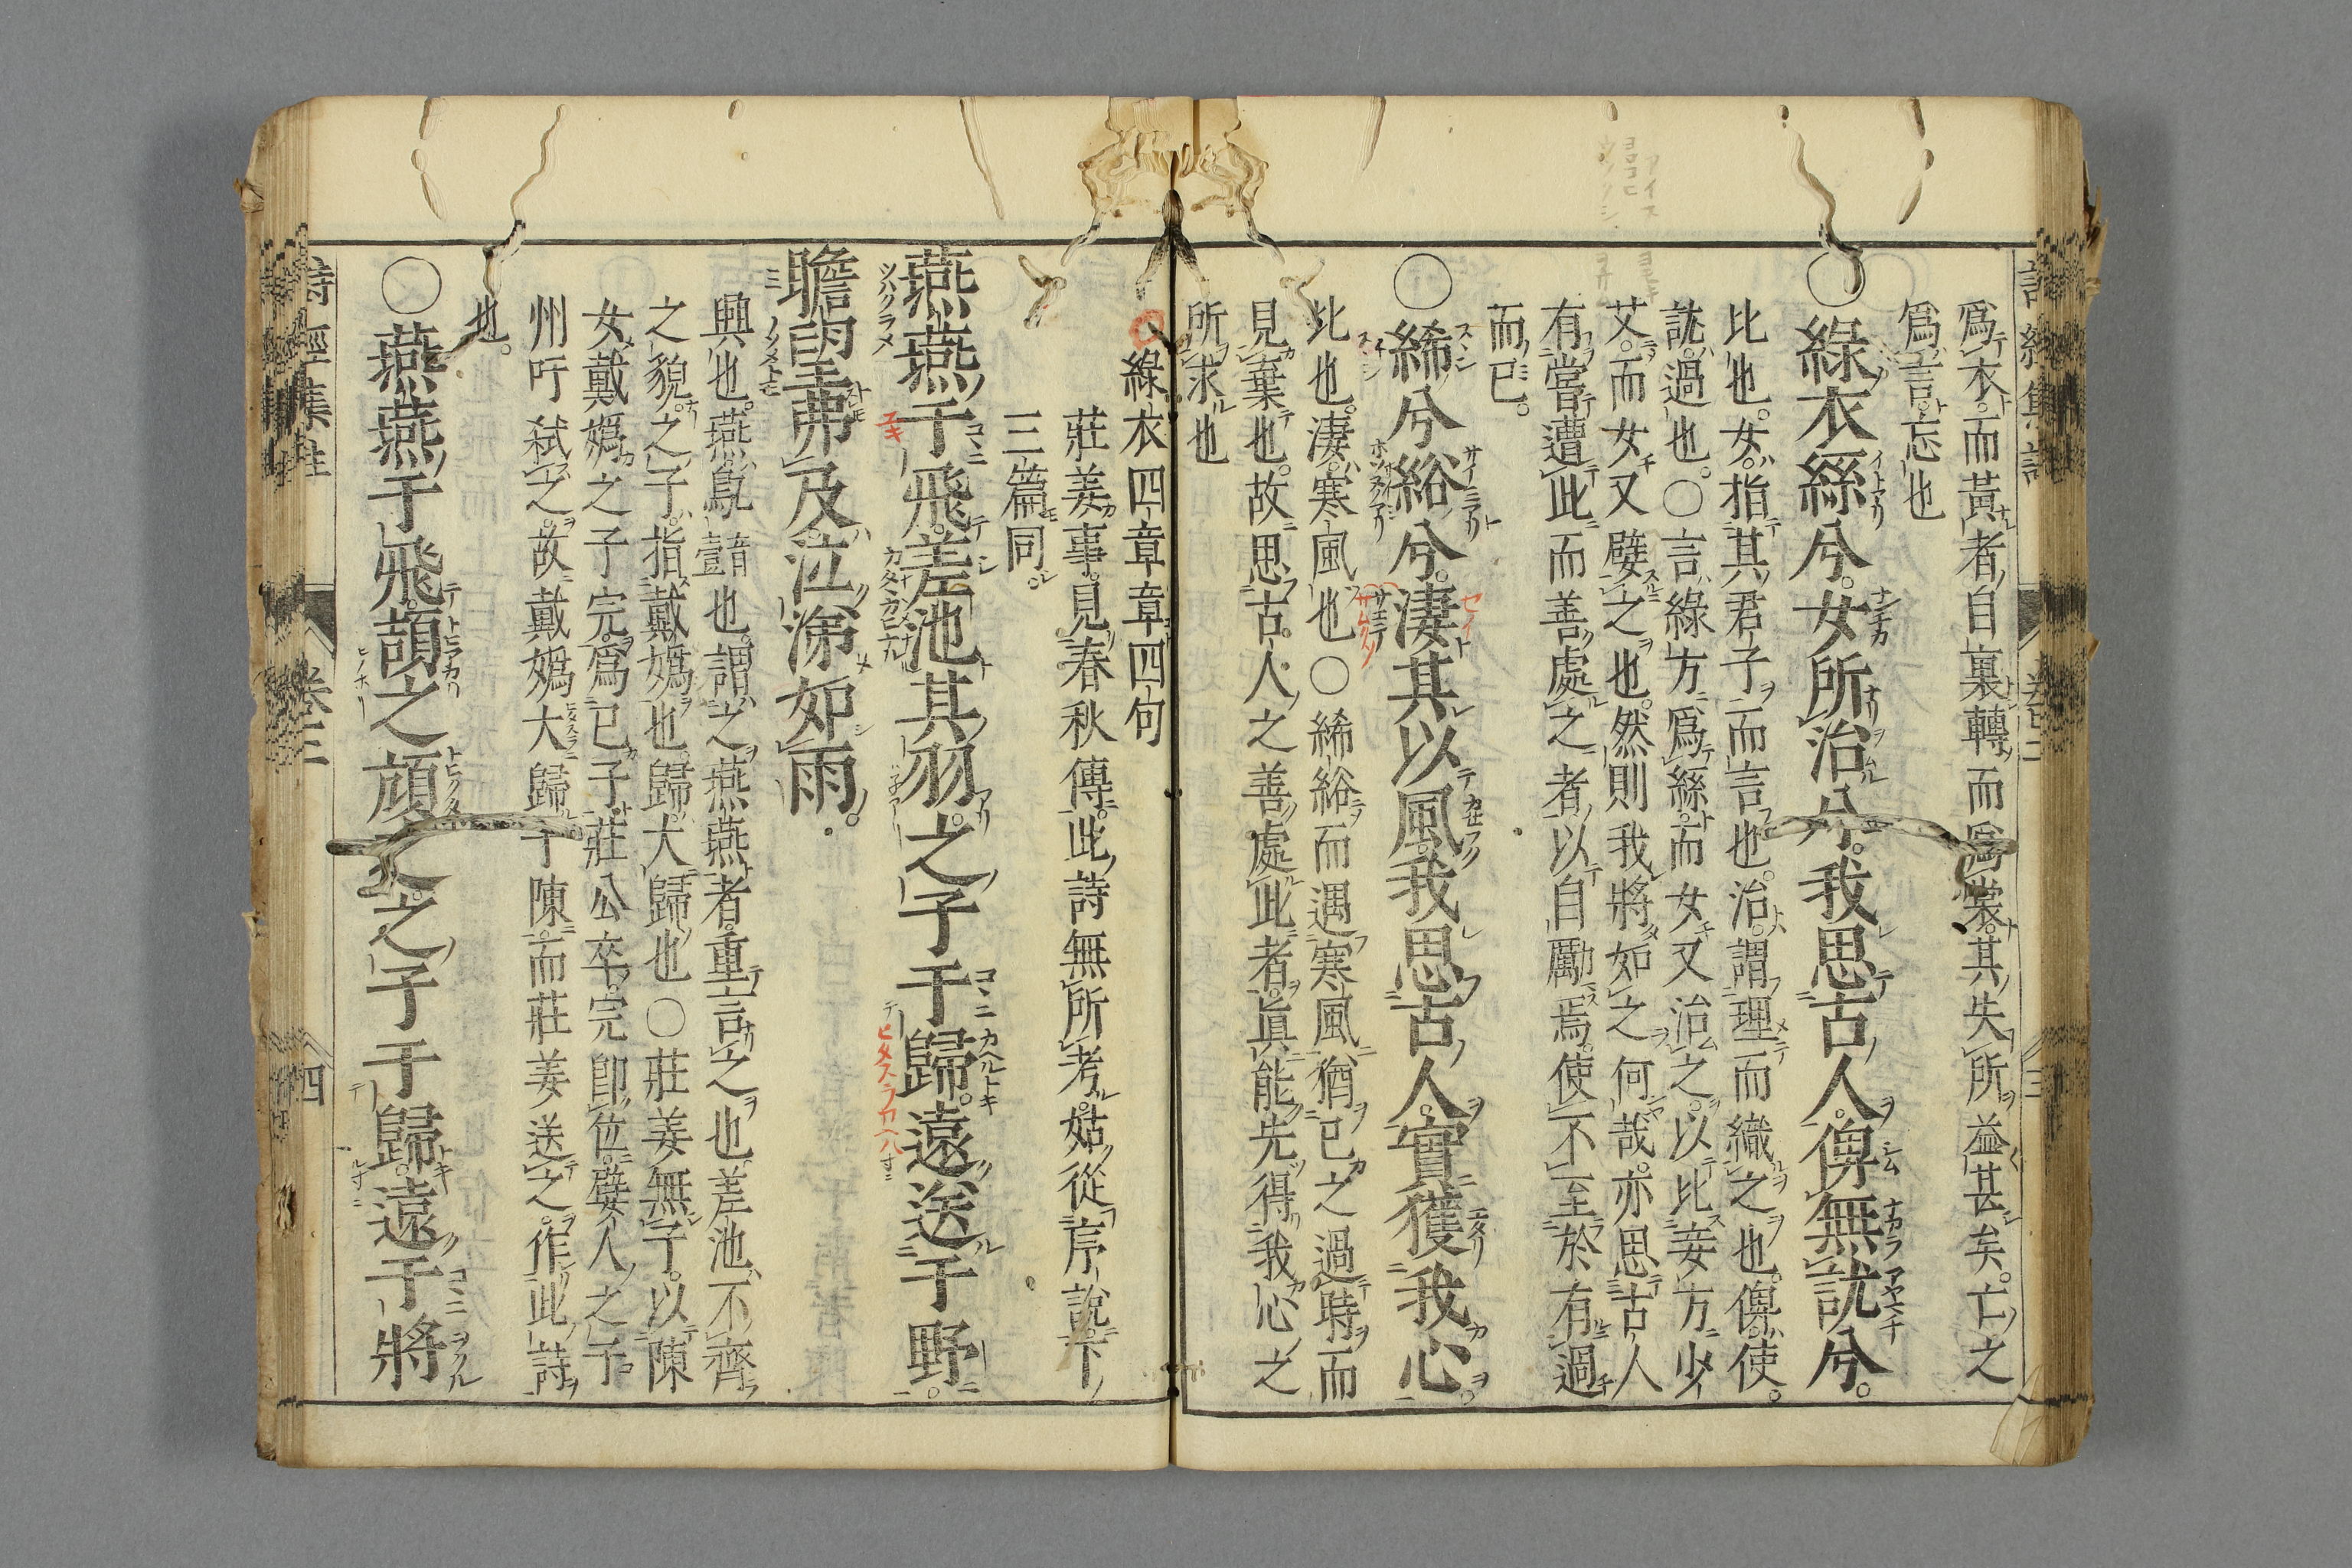 爲衣而黃者自裏轉而爲裳其失所益甚矣亡之
爲言忘也
○綠衣絲兮女所治兮我思古人俾無訧兮
比也女指其君子而言也治謂理而織之也俾使
訧過也○言綠方爲絲而女又治之以比妾方少
艾而女又嬖之也然則我將如之何哉亦思古人
有嘗遭此而善處之者以自勵焉使不至於有過
而已
○絺兮綌兮淒其以風我思古人實獲我心
比也淒寒風也○絺綌而遇寒風猶己之過時而
見棄也故思古人之善處此者眞能先得我心之
所求也
綠衣四章章四句
莊姜事見春秋傳此詩無所考姑從序說下
三篇同
燕燕于飛差池其羽之子于歸遠送于野
瞻望弗及泣涕如雨
興也燕鳦也謂之燕燕者重言之也差池不齊
之貌之子指戴嬀也歸大歸也○莊姜無子以陳
女戴嬀之子完爲己子莊公卒完卽位嬖人之子
州吁弒之故戴嬀大歸于陳而莊姜送之作此詩
也
○燕燕于飛頡之頏之之子于歸遠于將
詩經集註 卷二 四